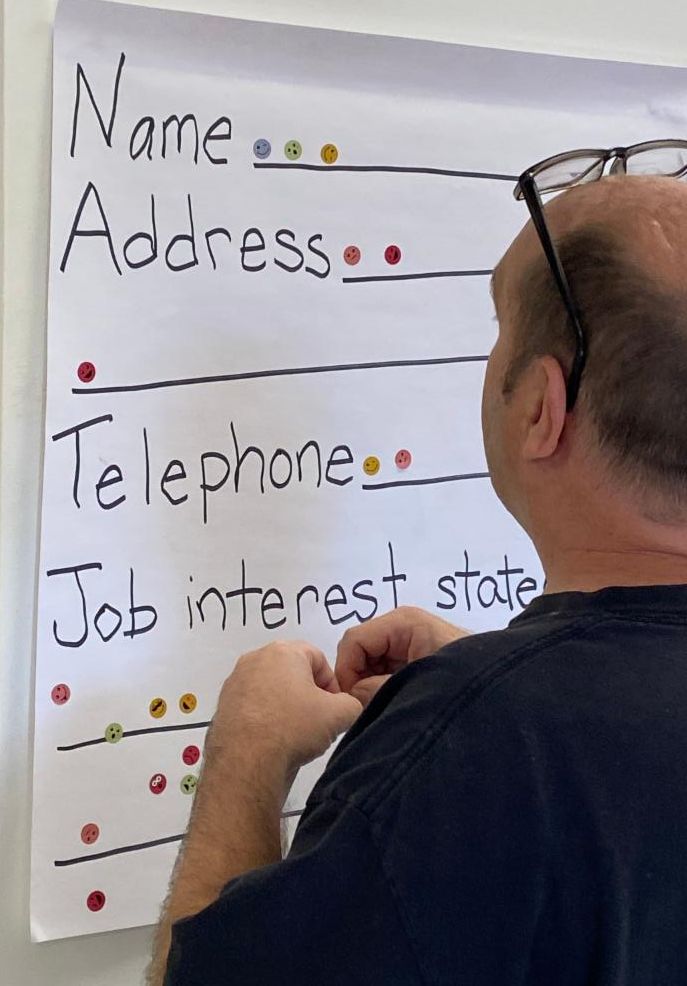 Name
Address
Telephone
Job interest state